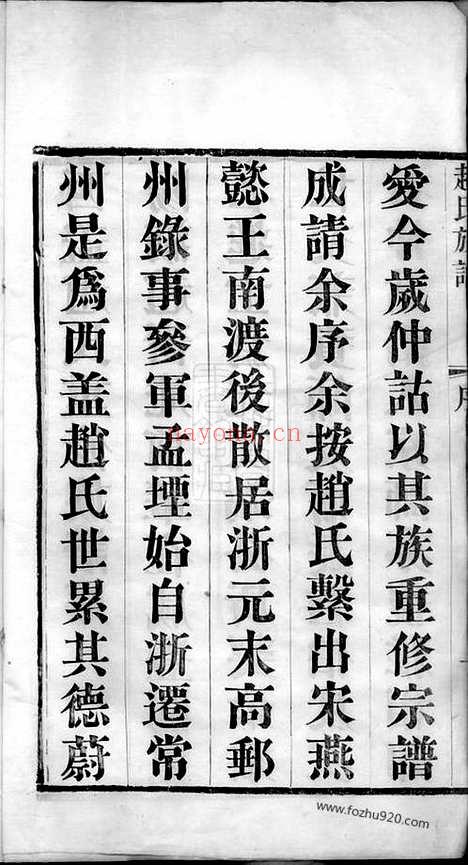 趙氏族譜
序
愛今歲仲詁以其族重修宗譜
成請余序余按趙氏繫出宋燕
懿王南渡後散居浙元末高郵
州錄事參軍孟堙始自浙遷常
州是爲西盖趙氏世累其德蔚
nayong.cn
www.fozhu920.com